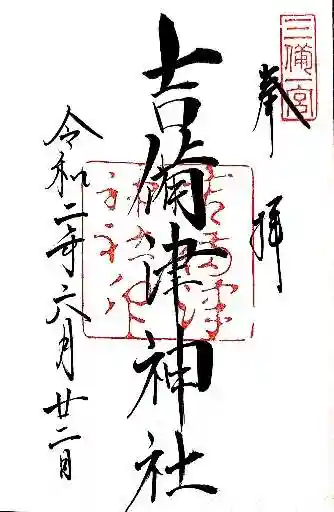 三備一宮
奉拝
吉備津神社
令和二年六月廿二日